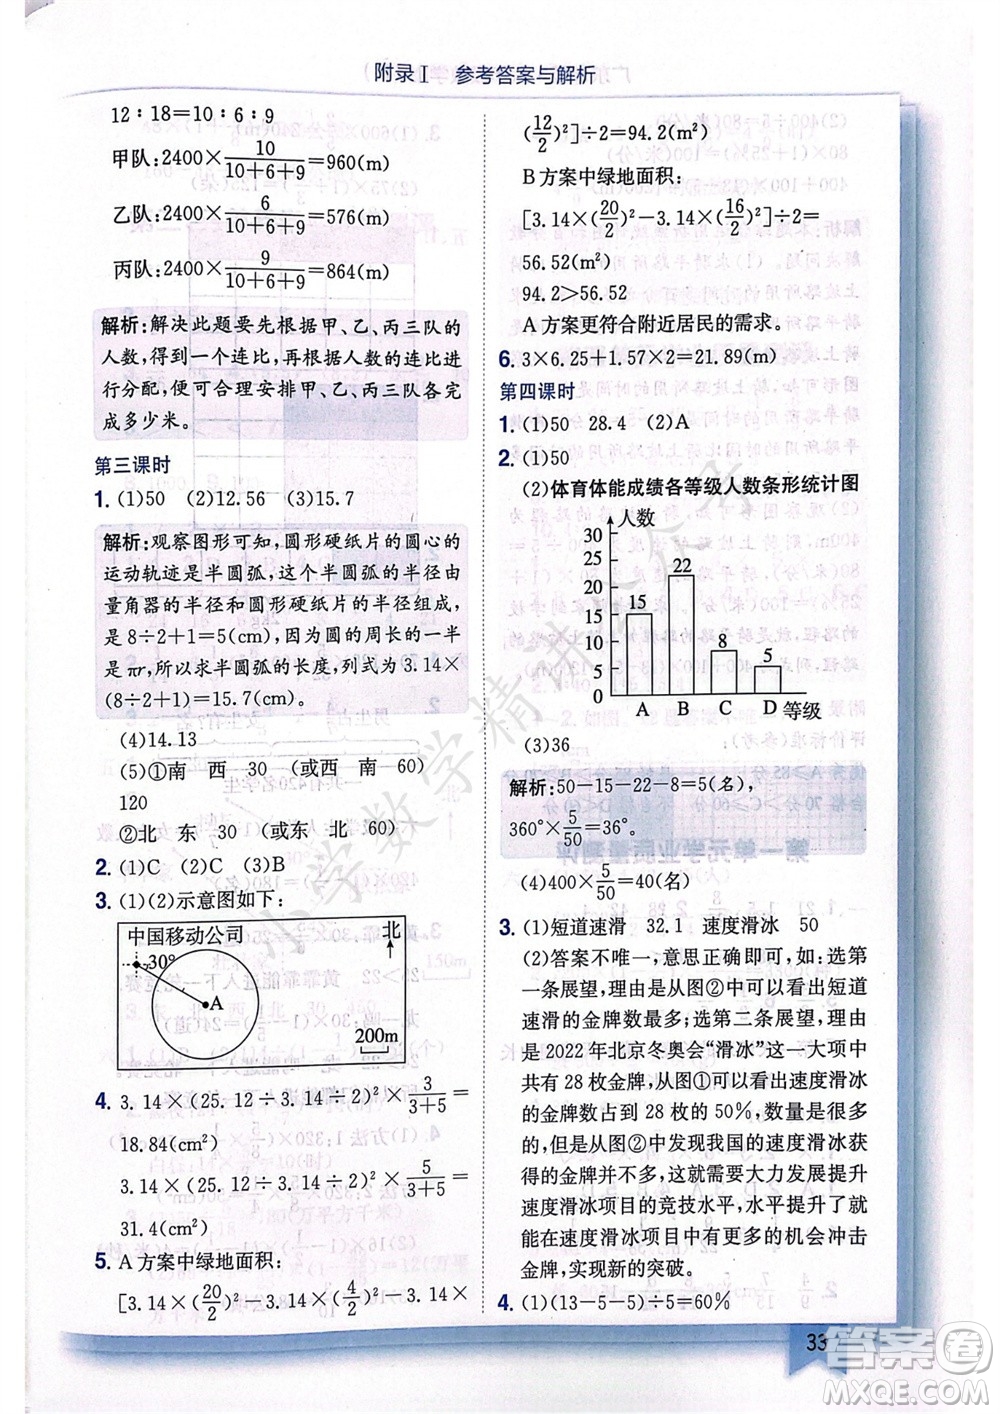 附录Ⅰ 参考答案与解析
12∶18=10∶6∶9
甲队:2400×10/(10+6+9)=960(m)
乙队:2400×6/(10+6+9)=576(m)
丙队:2400×9/(10+6+9)=864(m)
解析:解决此题要先根据甲、乙、丙三队的
人数,得到一个连比,再根据人数的连比进
行分配,便可合理安排甲、乙、丙三队各完
成多少米。
第三课时
1. (1)50 (2)12.56 (3)15.7
解析:观察图形可知,圆形硬纸片的圆心的
运动轨迹是半圆弧,这个半圆的半径由
量角器的半径和圆形硬纸片的半径组成,
是8÷2+1=5(cm)。圆的周长的一半
是πr,所以求半圆弧的长度,列式为3.14×
(8÷2+1)=15.7(cm)。
(4)14.13
(5)①南 西 30 (或西 南 60)
120
②北 东 30 (或东 北 60)
2. (1)C (2)C
3. (1)(2)示意图如下:
中国移动公司
北
30°
A
200m
4. 3.14×(25.12÷3.14÷2)²×3/(3+5)=
18.84(cm²)
3.14×(25.12÷3.14÷2)²×5/(3+5)=
31.4(cm²)
5. A方案中绿地面积:
[3.14×(20/2)²-3.14×(4/2)²-3.14×
(12/2)²]÷2=94.2(m²)
B方案中绿地面积:
[3.14×(20/2)²-3.14×(16/2)²]÷2=
56.52(m²)
94.2>56.52
A方案更符合附近居民的需求。
6. 3×6.25+1.57×2=21.89(m)
第四课时
1. (1)50 28.4 (2)A
2. (1)50
(2)体育体能成绩各等级人数条形统计图
人数
30
25
20
15
10
5
0
15
22
8
5
A B C D 等级
(3)36
解析:50-15-22-8=5(名),
360°×5/50=36°。
(4)400×5/50=40(名)
3. (1)短道速滑 32.1 速度滑冰 50
(2)答案不唯一,意思正确即可,如:选第
一条展望,理由是从图②中可以看出短道
速滑的金牌数最多;选第二条展望,理由
是2022年北京冬奥会“滑冰”这一大项中
共有28枚金牌,从图①可以看出速度滑冰
的金牌数占到28枚的50%,数量是很多
的,但从图②中发现我国的速度滑冰获
得的金牌不多,这就需要大力发展、提升
速度滑冰项目的竞技水平,水平提升了,
在速度滑冰项目中就有更多的机会冲击
金牌,实现新的突破。
4. (1)(13-5-5)÷5=60%
33
小学数学精讲
答案圈
MXQE.COM